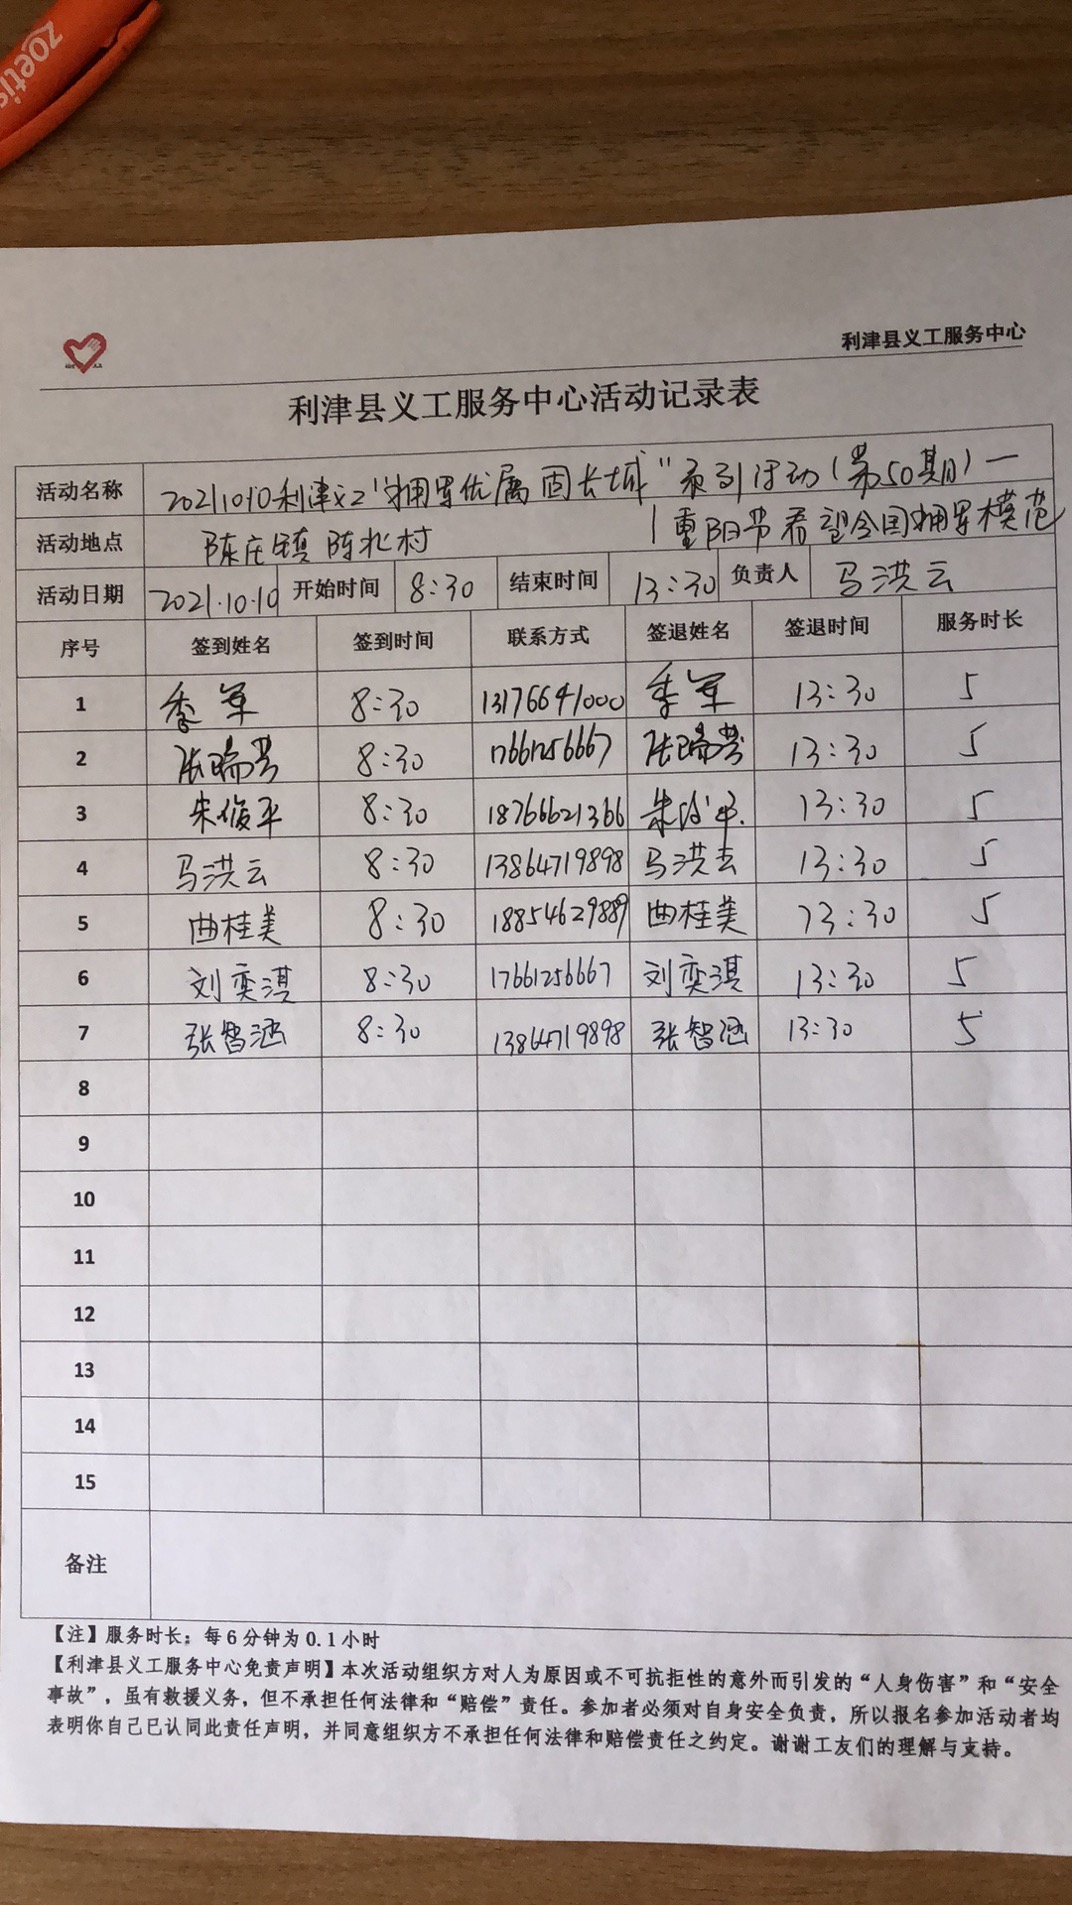 zoetis
利津县义工服务中心
利津县义工服务中心活动记录表
活动名称 20211010利津义工"拥军优属 固长城"系列活动(第50期)—
活动地点 陈庄镇陈北村 重阳节看望全国拥军模范
活动日期 2021.10.10 开始时间 8:30 结束时间 13:30 负责人 马洪云
序号 签到姓名 签到时间 联系方式 签退姓名 签退时间 服务时长
1 季军 8:30 13176641000 季军 13:30 5
2 张瑞芳 8:30 17661256667 张瑞芳 13:30 5
3 朱俊平 8:30 18766621366 朱俊平 13:30 5
4 马洪云 8:30 13864719898 马洪云 13:30 5
5 曲桂美 8:30 18854629889 曲桂美 13:30 5
6 刘奕淇 8:30 17661256667 刘奕淇 13:30 5
7 张智涵 8:30 13864719898 张智涵 13:30 5
8
9
10
11
12
13
14
15
备注
【注】服务时长：每6分钟为0.1小时
【利津县义工服务中心免责声明】本次活动组织方对人为原因或不可抗拒性的意外而引发的“人身伤害”和“安全
事故”，虽有救援义务，但不承担任何法律和“赔偿”责任。参加者必须对自身安全负责，所以报名参加活动者均
表明你自己已认同此责任声明，并同意组织方不承担任何法律和赔偿责任之约定。谢谢工友们的理解与支持。